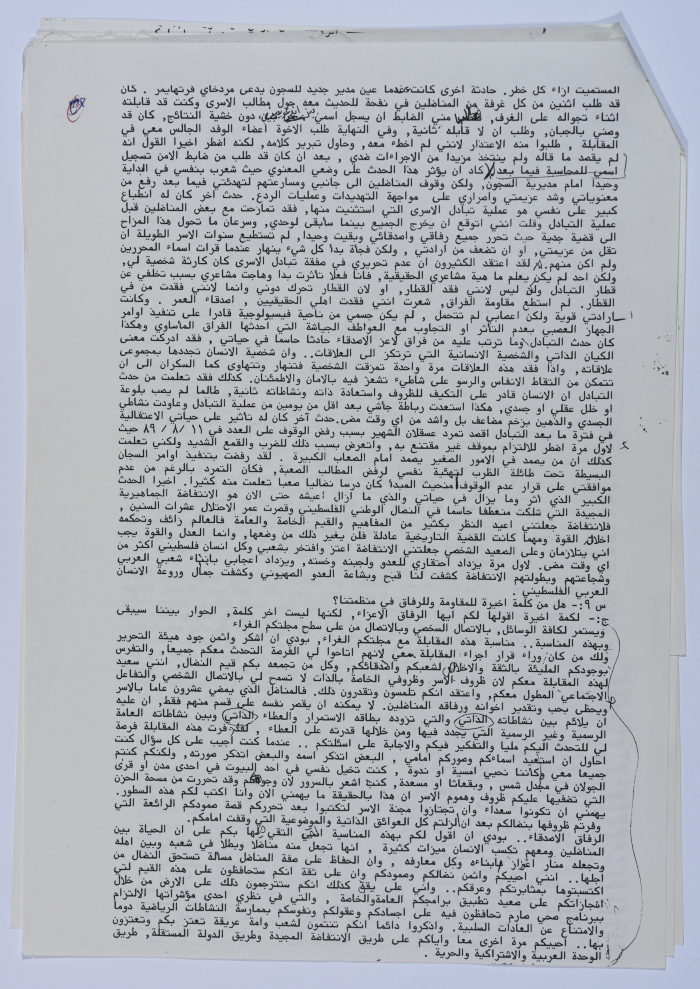 المستميت ازاء كل خطر. حادثة اخرى كانت عندما عين مدير جديد للسجون يدعى مردخاي فرتهايمر . كان
قد طلب اثنين من كل غرفة من المناضلين في نفحة للحديث معه حول مطالب الاسرى وكنت قد قابلته
اثناء تجواله على الغرف, مني الضابط ان يسجل اسمي دون خشية النتائج, كان قد
وصني بالجبان, وطلب ان لا قابله ثانية, وفي النهاية طلب الاخوة اعضاء الوفد الجالس معي في
المقابلة , طلبوا منه الاعتذار لانني لم اخطء معه, وحاول تبرير كلامه, لكنه اضطر اخيرا القول انه
لم يقصد ما قاله ولم يتخذ مزيدا من الاجراءات ضدي , بعد ان كان قد طلب من ضابط الامن تسجيل
اسمي للمحاسبة فيما بعد كاد ان يؤثر هذا الحدث على وضعي المعنوي حيث شعرب بنفسي في البداية
وحيدا امام مديرية السجون, ولكن وقوف المناضلين الى جانبي ومسارعتهم لتهدئتي فيما بعد رفع من
معنوياتي وشد عزيمتي واصراري على مواجهة التهديدات وعمليات الردع. حدث اخر كان له انطباع
كبير على نفسي هو عملية تبادل الاسرى التي استثنيت منها, فقد تمازحت مع بعض المناضلين قبل
عملية التبادل وقلت انني اتوقع ان يخرج الجميع بينما سابقى لوحدي, وسرعان ما تحول هذا المزاح
الى قضية جدية حيث تحرر جميع رفاقي واصدقائي وبقيت وحيدا, لم تستطيع سنوات الاسر الطويلة ان
تقل من عزيمتي, او ان تضعف من ارادتي , ولكن فجأة بدا كل شيء ينهار عندما قرات اسماء المحررين
ولم اكن منهم. لقد اعتقد الكثيرون ان عدم تحريري في صفقة تبادل الاسرى كان كارثة شخصية لي,
ولكن احد لم يكن يعلم ما هية مشاعري الحقيقية, فانا فعلا تأثرت بدا وهاجت مشاعري بسبب تخلفي عن
قطار التبادل ولكن ليس لانني فقد القطار, او لان القطار تحرك دوني وانما لانني فقدت من في
القطار. لم استطع مقاومة الفراق, شعرت انني فقدت اهلي الحقيقيين , اصدقاء العمر . وكانت
ارادتي قوية ولكن اعصابي لم تتحمل , لم يكن جسمي من ناحية فيسيولوجية قادرا على تنفيذ اوامر
الجهاز العصبي بعدم التأثر او التجاوب مع العواطف الجياشة التي احدثها الفراق المأساوي وهكذا
كان حدث التبادل وما ترتب عليه من فراق لاعز الاصدقاء حادثا حاسما في حياتي , فقد ادركت معنى
الكيان الذاتي والشخصية الانسانية التي ترتكز الى العلاقات.. وان شخصية الانسان تجددها بمجموعى
علاقاته, واذا فقد هذه العلاقات مرة واحدة تمزقت الشخصية فتنهار وتتهاوى كما السكران الى ان
نتمكن من التقاط الانفاس والرسو على شاطىء تشعر فيه بالامان والاطمئنان. كذلك فقد تعلمت من حدث
التبادل ان الانسان قادر على التكيف للظروف واستعادة ذاته ونشاطاته ثانية, طالما لم يصب بلوعة
او خلل عقلي او جسدي, هكذا استعدت رباطة جاشي بعد اقل من يومين من عملية التبادل وعاودت نشاطي
الجسدي والذهين بزخم مضاعف بل واشد من اي وقت مضى.حدث آخر كان له تأثير على حياتي الاعتقالية
في فترة ما بعد التبادل اقصد تمرد عسقلان الشهير بسبب رفض الوقوف على العدد في ١١ /٨/ ٨٩ حيث
لاول مرة اضطر للالتزام بموقف غير مقتنع به, واتعرض بسبب ذلك للضرب والقمع الشديد ولكني تعلمت
كذلك ان من يصمد في الامور الصغير يصمد امام الصعاب الكبيرة . لقد رفضت بتنفيذ اوامر السجان
البسيطة تحت طائلة الظرب لتهئية نفسي لرفض المطالب الصعبة, فكان التمرد بالرغم من عدم
موافقتي على قرار عدم الوقوف منحيث المبدأ كان درسا نضاليا صعبا تعلمت منه كثيرا. اخيرا الحدث
الكبير الذي اثر وما يزال في حياتي والذي ما ازال اعيشه حتى الان هو الانتفاضة الجماهيرية
المجيدة التي شلكت منعطفا حاسما في النضال الوطني الفلسطيني وقصرت عمر الاحتلال عشرات السنين ,
فلانتفاضة جعلتني اعيد النظر بكثير من المفاهيم والقيم الخاصة والعامة فالعالم زائف وتحكمه
اخلاق القوة ومهما كانت القضية التاريخية عادلة فلن يغير ذلك من وضعها, وانما العدل والقوة يجب
اني يتلازمان وعلى الصعيد الشخصي جعلتني الانتفاضة اعتز وافتخر بشعبي وكل انسان فلسطيني اكثر من
اي وقت مضى. لاول مرة يزداد احتقاري للعدو ولجبنه وخسته, ويزداد اعجابي بابناء شعبي العربي
وشجاعتهم وبطولتهم الانتفاضة كشفت لنا قبح وبشاعة العدو الصهيوني وكشفت جمال وروعة الانسان
العربي الفلسطيني .
س ٩:- هل من كلمة اخيرة للمقاومة وللرفاق في منظمتنا؟
ج:- لكمة اخيرة اقولها لكم ايها الرفاق الاعزاء, لكنها ليست اخر كلمة, الحوار بيننا سيبقى
ويستمر لكافة الوسائل, بالاتصال السخصي وبالاتصال من على سطح مجلتكم الغراء
وبهذه المناسبة.. مناسبة هذه المقابلة مع مجلتكم الغراء, بودي ان اشكر واثمن جود هيئة التحرير
ولك من كان وراء قرار اجراء المقابلة معي لانهم اتاحوا لي الفرصة التحدث معكم جميعا, والتفرس
بوجودكم المليئة بالثقة والاخلاق لشعبكم واصدقائكم, وكل من تجمعه بكم قيم النضال, انني سعيد
لهذه المقابلة معكم لان ظروف الاسر وظروفي الخاصة بالذات لا تسمح لي بالاتصال الشخصي والتفاعل
الاجتماعي المطول معكم, واعتقد انكم تلمسون وتقدرون ذلك. فالمناضل الذي يمضي عشرون عاما بالاسر
ويحظى بحب وتقدير اخوانه ورفاقه المناظلين. لا يمكنه ان يقصر نفسه على قسم منهم فقط, ان عليه
ان يلائم بين نشاطاته الذاتي والتي تزوده بطاقه الاستمرار والعطاء الذاتي وبين نشاطاته العامة
الرسمية وغير الرسمية التي يجدد فيها ومن خلالها قدرته على العطاء , لقد وفرت هذه المقابلة فرصة
لي للتحدث اليكم مليا والتفكير فيكم والاجابة على اسئلتكم .. عندما كنت اجيب على كل سؤال كنت
احاول ان استعيد اسماءكم وصوركم امامي , البعض اتذكر اسمه والبعض اتذكر صورته, ولكنكم كنتم
جميعا معي وكأننا نحيي امسية او ندوة , كنت تخيل نفسي في احد البيوت في احدى مدن او قرى
الجولان في مجدل شمس , وبقعاثا او مسعدة, كنت اشعر بالسرور لان وجوهكم وقد تحررت من مسحة الحزن
التي تضفيها عليكم ظروف وهموم الاسر ان هذا بالحقيقة ما يهمني الان وانا اكتب لكم هذه السطور.
يهمني ان تكونوا سعداء وان تجتازوا محنة الاسر لتكتبوا بعد تحرركم قصة صمودكم الرائعة التي
وفرتم ظروفها بنضالكم بعد ان ازلتم كل العوائق الذاتية والموضوعية التي وقفت امامكم.
الرفاق الاصدقاء.. بودي ان اقول لكم بهذه المناسبة التي التقي بها بكم على ان الحياة بين
المناضلين ومعهم تكسب الانسان ميزات كثيرة , انها تجعل منه مناضلا وبطلا في شعبه وبين اهله
وتجعله منار اعزاز لابناءه وكل معارفه , وان الحفاظ على صفة المناضل مسألة تستحق النضال من
اجلها.. انني احييكم واثمن نضالكم وصمودكم وان على ثقة انكم ستحافظون على هذه القيم لتي
اكتسبتوها بمثابرتكم وعرقكم.. واني على يقين كذلك انكم ستترجمون ذلك على الارض من خلال
انجازاتكم على صعيد تطبيق برامجكم العامة والخاصة , والتي في نظري احدى مؤشراتها الالتزام
ببرنامج صحي صارم تحافظون فيه على اجسادكم وعقولكم ونفوسكم بممارسة النشاطات الرياضية دوما
والامتناع عن العادات السلبية. واذكروا دائما انكم تنتمون لشعب وامة عريقة تعتز بكم وتعتزون
بها.. احييكم مرة اخرى معا واياكم على طريق الانتفاضة المجيدة وطريق الدولة المستقلة, طريق
الوحدة العربية والاشتراكية والحرية .